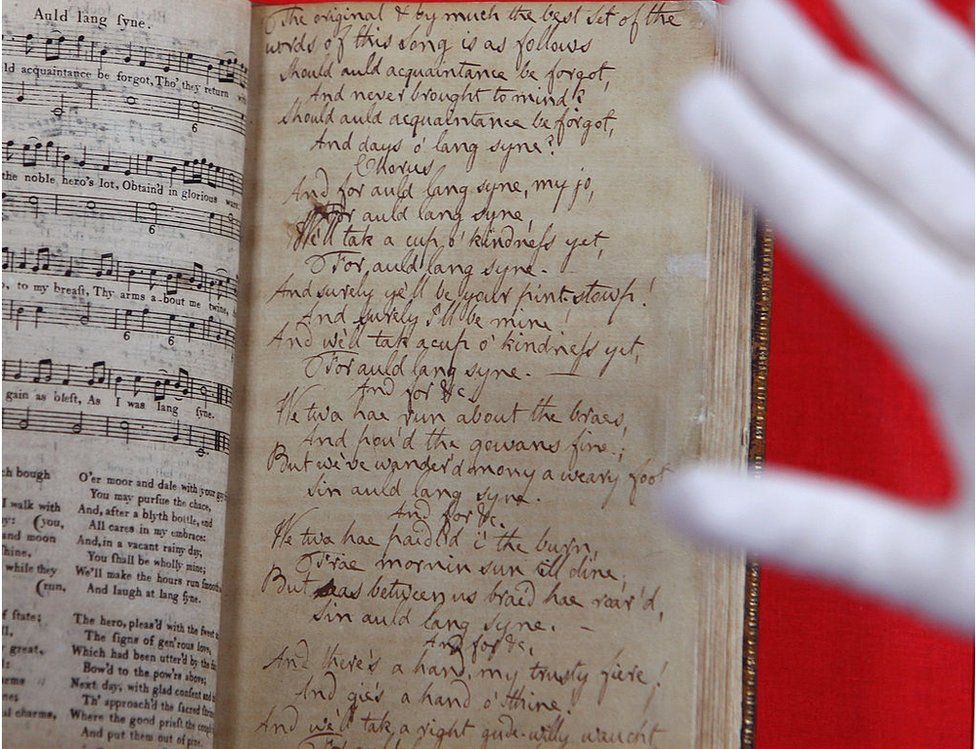 Auld lang ſyne.
ld acquaintance be forgot, Tho' they return
6
the noble hero's lot, Obtain'd in glorious war
6
to my breaſt, Thy arms a-bout me twine,
6 6
gain as bleſt, As I was lang ſyne.
ch bough
I walk with
y: (you,
and moon
ſhine,
while they
(run,
f ſtate;
great,
al charms,
O'er moor and dale with your gay
You may purſue the chace,
And, after a blyth bottle, end
All cares in my embrace:
And, in a vacant rainy day,
You ſhall be wholly mine;
We'll make the hours run ſmooth
And laugh at lang ſyne.
The hero, pleas'd with the ſweet
The ſigns of gen'rous love,
Which had been utter'd by the fair
Bow'd to the pow'rs above;
Next day, with glad conſent and
Th' approach'd the ſacred
Where the good prieſt the coupl
And put them out of
The original & by much the best set of the
words of this song is as follows
Should auld acquaintance be forgot,
And never brought to mind?
Should auld acquaintance be forgot,
And days o' lang syne?
Chorus
And for auld lang syne, my jo,
For auld lang syne,
We'll tak a cup o' kindneſs yet,
For auld lang syne. —
And surely ye'll be your pint-stowp!
And surely I'll be mine!
And we'll tak a cup o' kindneſs yet,
For auld lang syne. —
And for &c.
We twa hae run about the braes,
And pou'd the gowans fine;
But we've wander'd mony a weary foot
Sin auld lang syne.
And for &c.
We twa hae paidl'd i' the burn,
Frae mornin sun till dine;
But seas between us braid hae roar'd,
Sin auld lang syne. —
And for &c.
And there's a hand, my trusty fiere!
And gie's a hand o' thine!
And we'll tak a right gude-willy waught
For